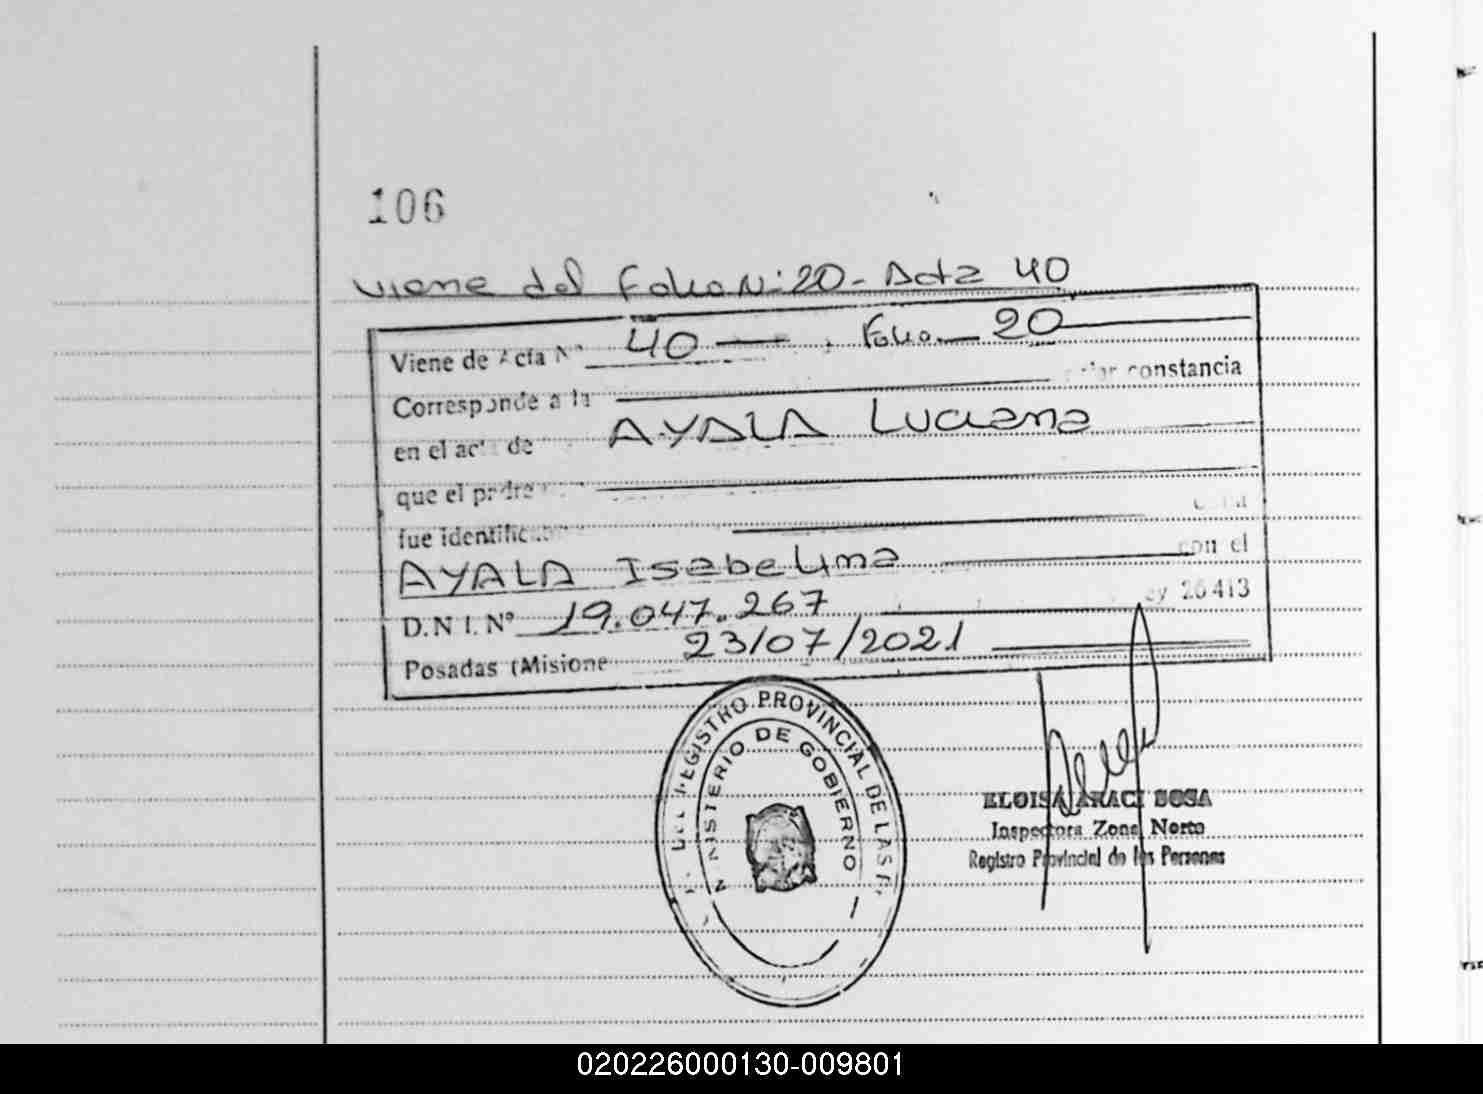 106
Viene del Folio Nº 20 - Acta 40
Viene de Acta Nº 40 , Folio 20
Corresponde a la dejar constancia
en el acta de AYALA Luciana
que el padre
fue identificado
AYALA Isabelina con el
D.N.I. Nº 19.047.267 Ley 26413
Posadas (Misione 23/07/2021
REGISTRO PROVINCIAL DE LAS P
MINISTERIO DE GOBIERNO
ELOISA ARACI SOSA
Inspectora Zona Norte
Registro Provincial de las Personas
020226000130-009801